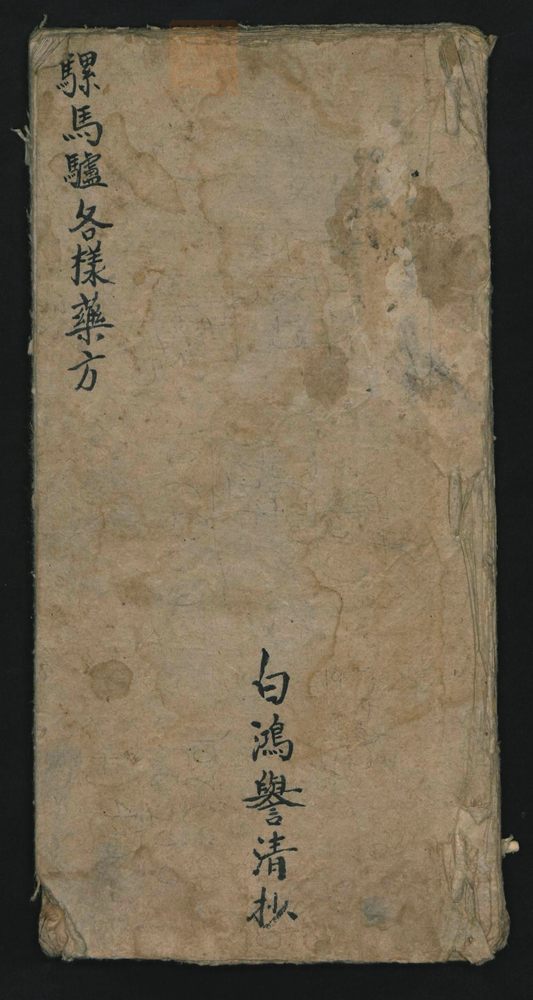 騾馬驢各樣藥方
白鴻譽清抄